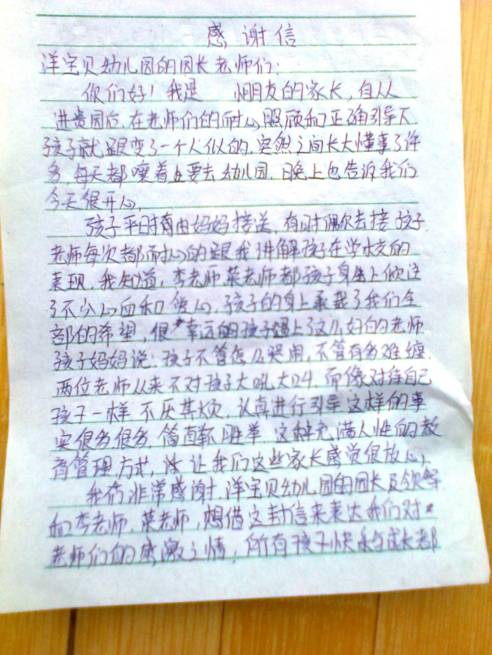 感谢信
洋宝贝幼儿园的园长老师们：
你们好！我是 小朋友的家长，自从
进贵园后，在老师们的耐心照顾和正确引导下
孩子就跟变了一个人似的，突然之间长大懂事了许
多 每天都嚷着要去幼儿园，晚上也告诉我们
今天很开心。
孩子平时有由妈妈接送，有时偶尔去接孩子
老师每次都耐心的跟我讲解孩子在学校的
表现，我知道，李老师 蔡老师都孩子身上倾注
了不少心血和 心，孩子的身上承载了我们全
部的希望，很幸运的孩子遇上了这么好的老师
孩子妈妈说，孩子不管怎么哭闹，不管有多难缠
两位老师从来不对孩子大吼大叫 而像对待自己
孩子一样 不厌其烦，认真进行引导 这样的事
实很多很多 简直数不胜举 这种充满人性的教
育管理方式，让我们这些家长感觉很放心，
我们非常感谢 洋宝贝幼儿园的园长及
的李老师，蔡老师，想借这封信来表达我们对
老师们的感激之情，所有孩子快乐与成长都